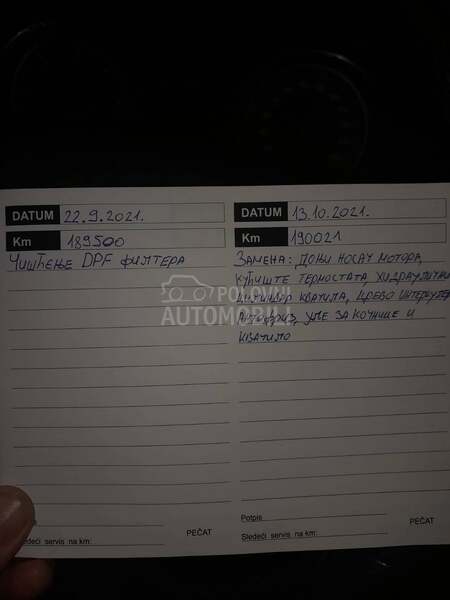 DATUM 22.9.2021.
Km 189500
Чишћење DPF филтера
Potpis
PEČAT
Sledeći servis na km:
DATUM 13.10.2021.
Km 190021
Замена: доњи носач мотора,
кућиште термостата, хидраулични
цилиндар квачила, црево интеркулера
Антифриз, уље за кочнице и
квачило
Potpis
PEČAT
Sledeći servis na km:
POLOVNI
AUTOMOBILI